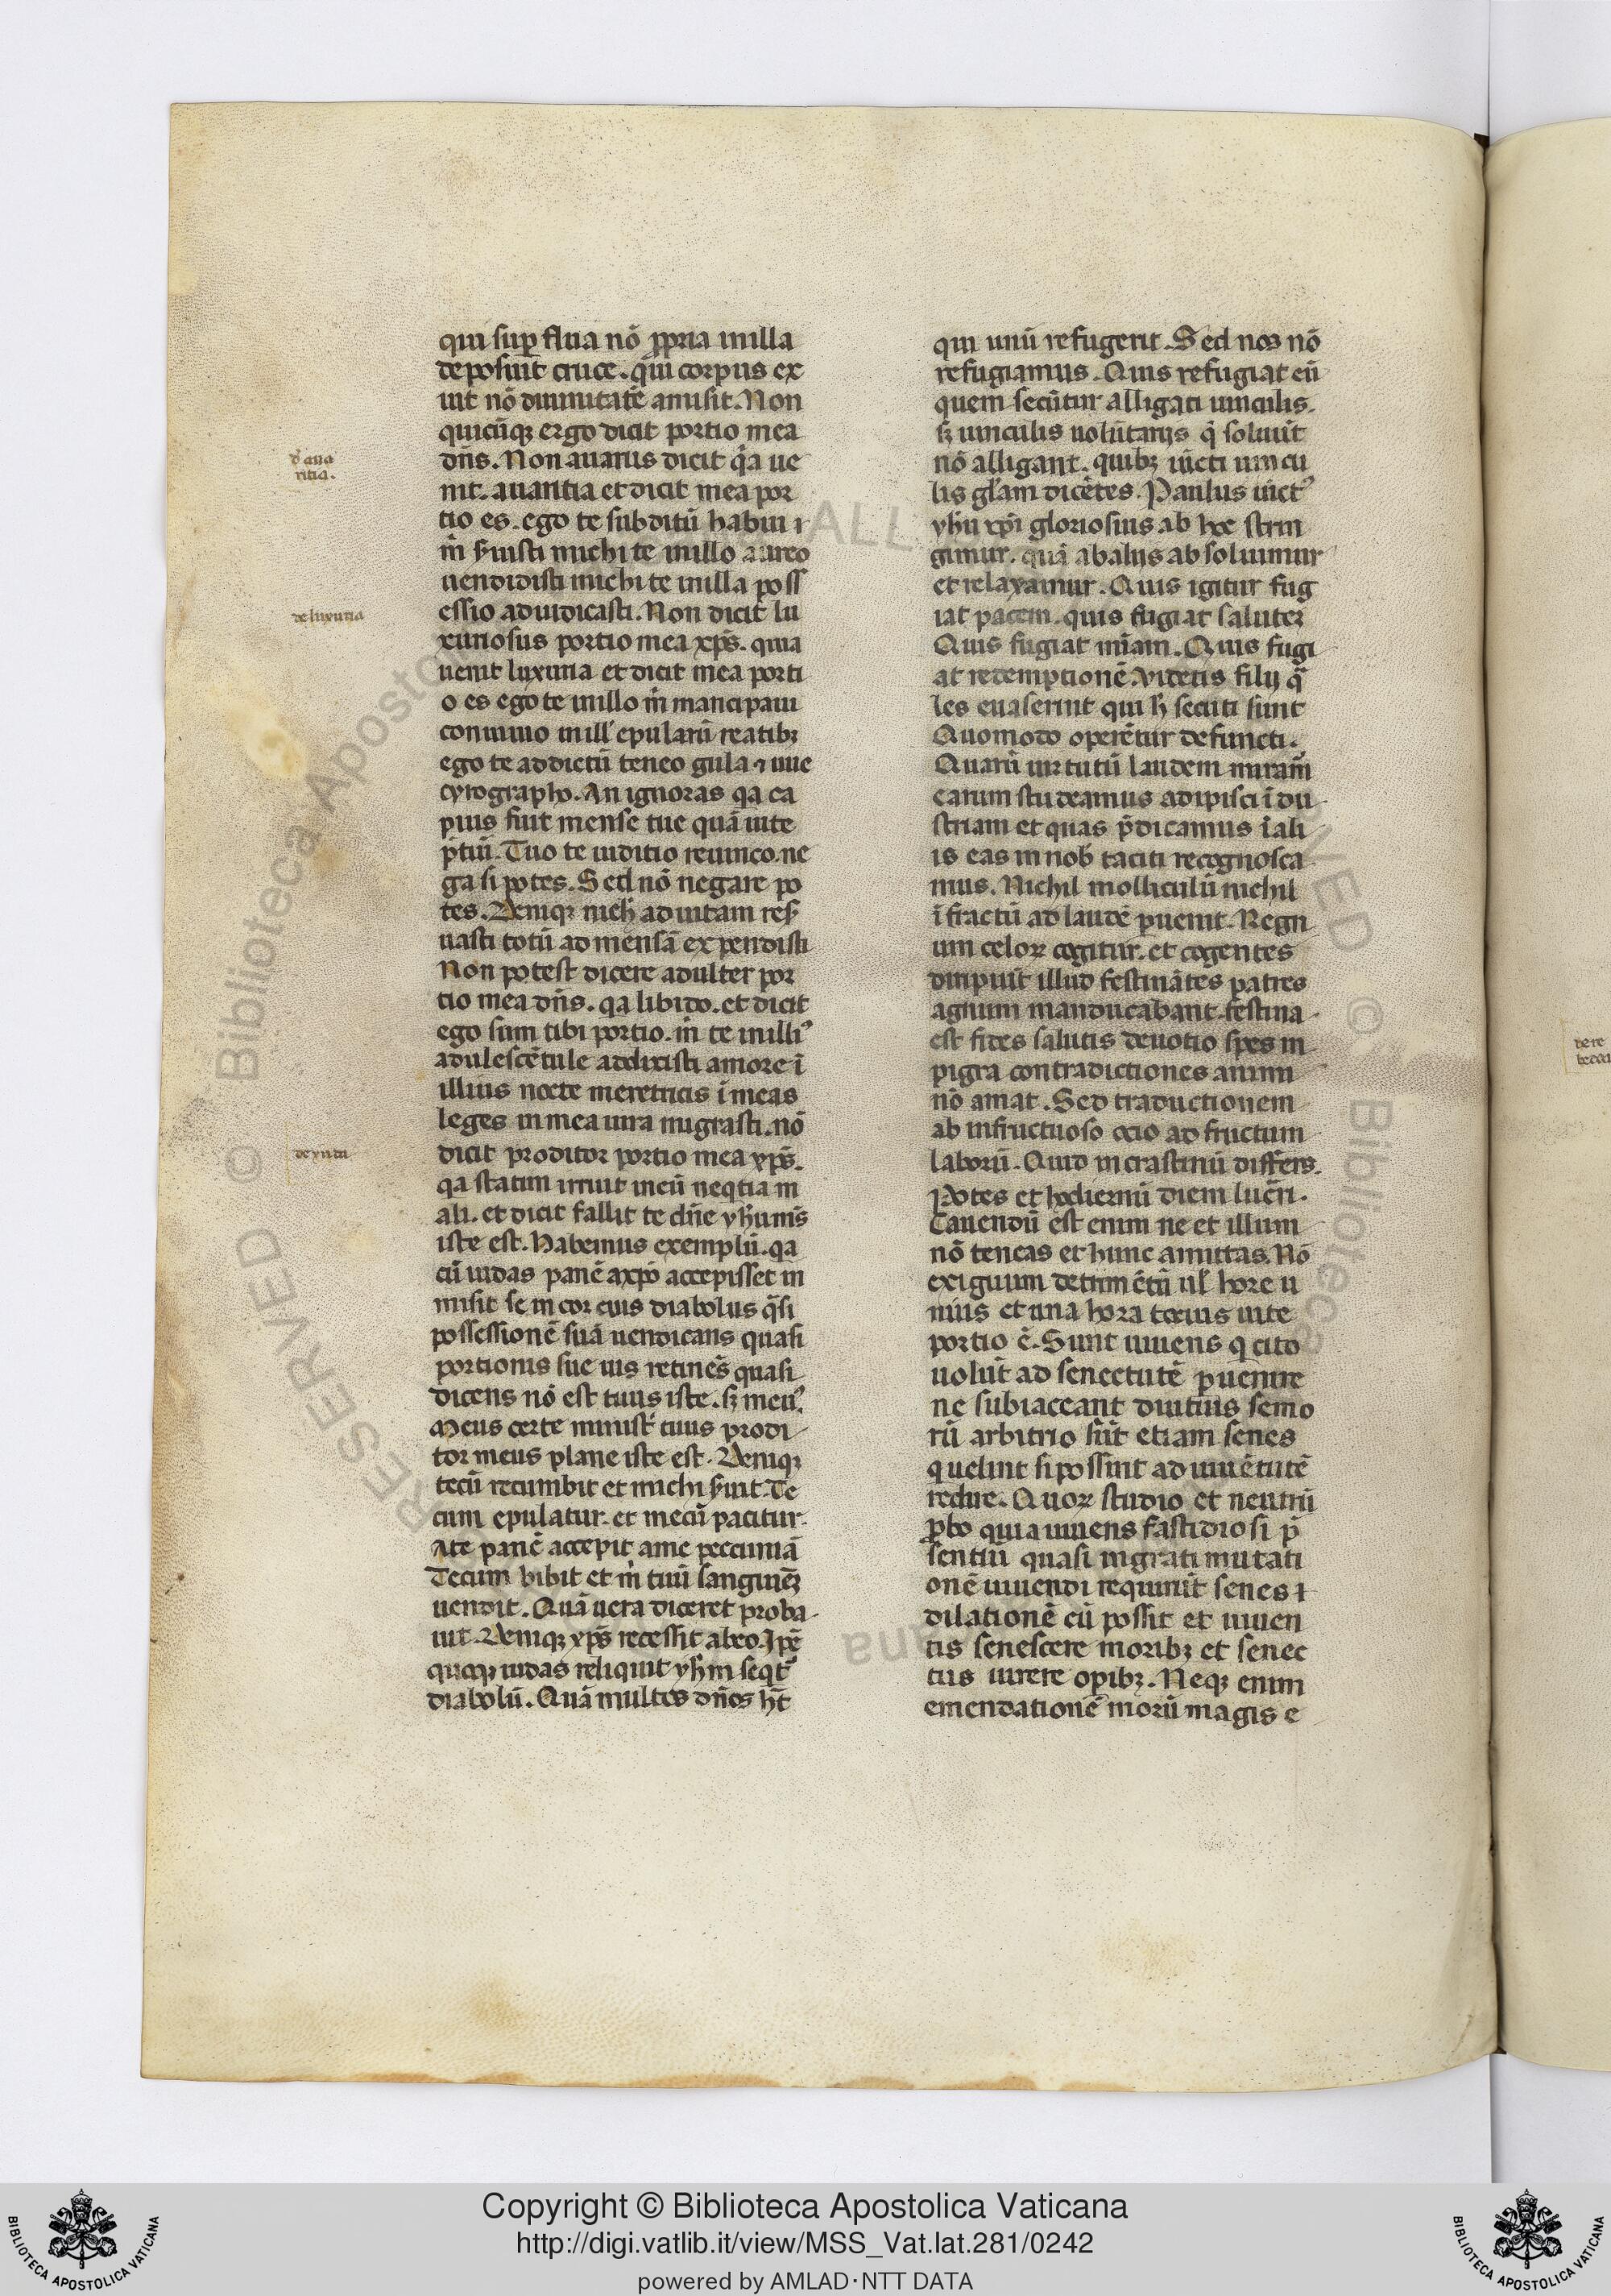 qui suꝑ flua nō ꝓpria in illa
deposuit cruce. qͥui corpus ex
uit nō diuinitatē amisit. Non
quicūqꝫ ergo dicit portio mea
dn̄s. Non auarus dicit qͥa ue
nit. auaritia et dicit mea por
tio es. ego te subditū habui ⁊
m̄ s̄uisti michi te in illo aureo
uendidisti michi te in illa poss
essio adiudicasti. Non dicit lu
xuriosus portio mea xp̄s. quia
uenit luxuria et dicit mea porti
o es ego te in illo m̄ mancipaui
conuiuio in ill' epularū reatibꝫ
ego te addictū teneo gula ⁊ uue
cyrographo. An ignoras qa ca
pius fuit mense tue quā uite
p̄tiū. Tuo te iuditio reuinco. ne
ga si potes. Sed nō negare po
tes. Deniqꝫ nich' ad uitam res̄
uasti totū ad mensā expendisti
Non potest dicere adulter por
tio mea dn̄s. qa libido. et dicit
ego sum tibi portio. m̄ te in illi'
adulescētule addixisti amore ī
illius nocte meretricis ī meas
leges in mea iura migrasti. nō
dicit proditor portio mea xp̄s.
qa statim irruit in eū neqtia m
ali. et dicit fallit te dn̄e yh̄u m̄s
iste est. Habemus exemplū. qa
cū iudas panē a xp̄o accepisset in
misit se in cor eius diabolus q̄si
possessionē suā uendicans quasi
portionis sue uis retinēs quasi
dicens nō est tuus iste. sꝫ meu'.
Meus certe minist' tuus prodi
tor meus plane iste est. Deniqꝫ
tecū recumbit et michi s̄uit. Te
cum epulatur. et mecū pacitur.
A te panē accepit a me peccuniā
Tecum bibit et m̄ tuū sanguinēꝫ
uendit. Quā uera diceret proba
uit. Deniqꝫ xp̄s recessit ab eo. Ip̄e
quoqꝫ iudas reliquit yh̄m seqt'
diabolū. Quā multos dn̄os h̄t
qui unū refugerit. Sed nos nō
refugiamus. Quis refugiat eū
quem secūtur alligati uinculis.
sꝫ uinculis uolūtariis q̄ soluūt
nō alligant. quibꝫ uīcti uincu
lis gl'am dicētes. Paulus uīct'
yh̄u xp̄i gloriosius ab hoc strin
gimur. quā ab aliis absoluimur
et relaxamur. Quis igitur fug
iat pacem. quis fugiat saluteꝫ
Quis fugiat mīam. Quis fugi
at redemptionē. Videtis filii q̄
les euaserint qui h̄ secuti sunt
Quomodo operētur defuncti.
Quarū uirtutū laudem miram̄
earum studeamus adipisci īdu
striam et quas p̄dicamus ī ali
is eas in nob̄ taciti recognosca
mus. Nichil molliculū nichil
ī fractū ad laudē ꝑuenit. Regn
um celoꝝ cogitur. et cogentes
diripiūt illud festinātes patres
agnum manducabant. festina
est fides salutis deuotio spes in
pigra contradictiones animi
nō amat. Sed traductionem
ab infructuoso ocio ad fructum
laborū. Quid in crastinū differs.
Potes et hodiernū diem lucr̄i.
Cauendū est enim ne et illum
nō teneas et hunc amittas. Nō
exiguum detrimētū ul' hore u
nius et una hora tocius uite
portio ē. Sunt iuuens q̄ cito
uolūt ad senectutē ꝑuenire
ne subiaceant diutius senio
rū arbitrio sūt etiam senes
q̄ uelint si possint ad iuuētutē
redire. Quoꝝ studio et neutrū
ꝓbo quia iuuens fastidiosi p̄
sentiū quasi ingrati mutati
onē uiuendi requirūt senes ⁊
dilationē cū possit et iuuen
tis senescere moribꝫ et senec
tus uirere opibꝫ. Neqꝫ enim
emendationē morū magis e
d' aua
ritia.
de luxuria
de re
Copyright © Biblioteca Apostolica Vaticana
http://digi.vatlib.it/view/MSS_Vat.lat.281/0242
powered by AMLAD·NTT DATA
BIBLIOTECA APOSTOLICA VATICANA
BIBLIOTECA APOSTOLICA VATICANA